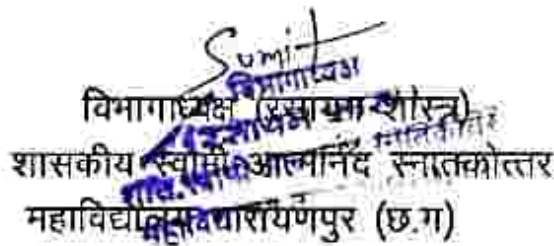 Sumit
विभागाध्यक्ष
विभागाध्यक्ष (रसायन शास्त्र)
शासकीय स्वामी आत्मानंद स्नातकोत्तर
महाविद्यालय नारायणपुर (छ.ग)